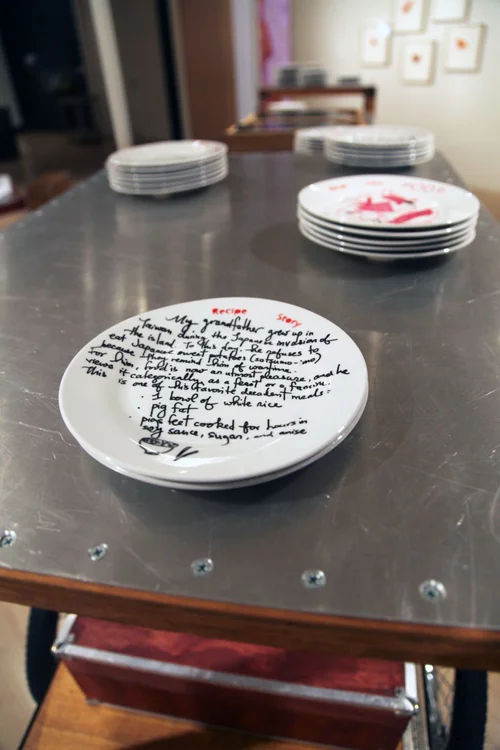 Recipe Story
My grandfather grew up in
Taiwan during the Japanese invasion of
the island. To this day, he refuses to
eat Japanese sweet potatoes (satsuma-imo)
because they remind him of wartime.
For him, food is now an utmost pleasure, and he
views it categorically as a feast or a famine.
This is one of his favorite decadent meals:
· 1 bowl of white rice
· pig fat
· pigs feet cooked for hours in
soy sauce, sugar, and anise